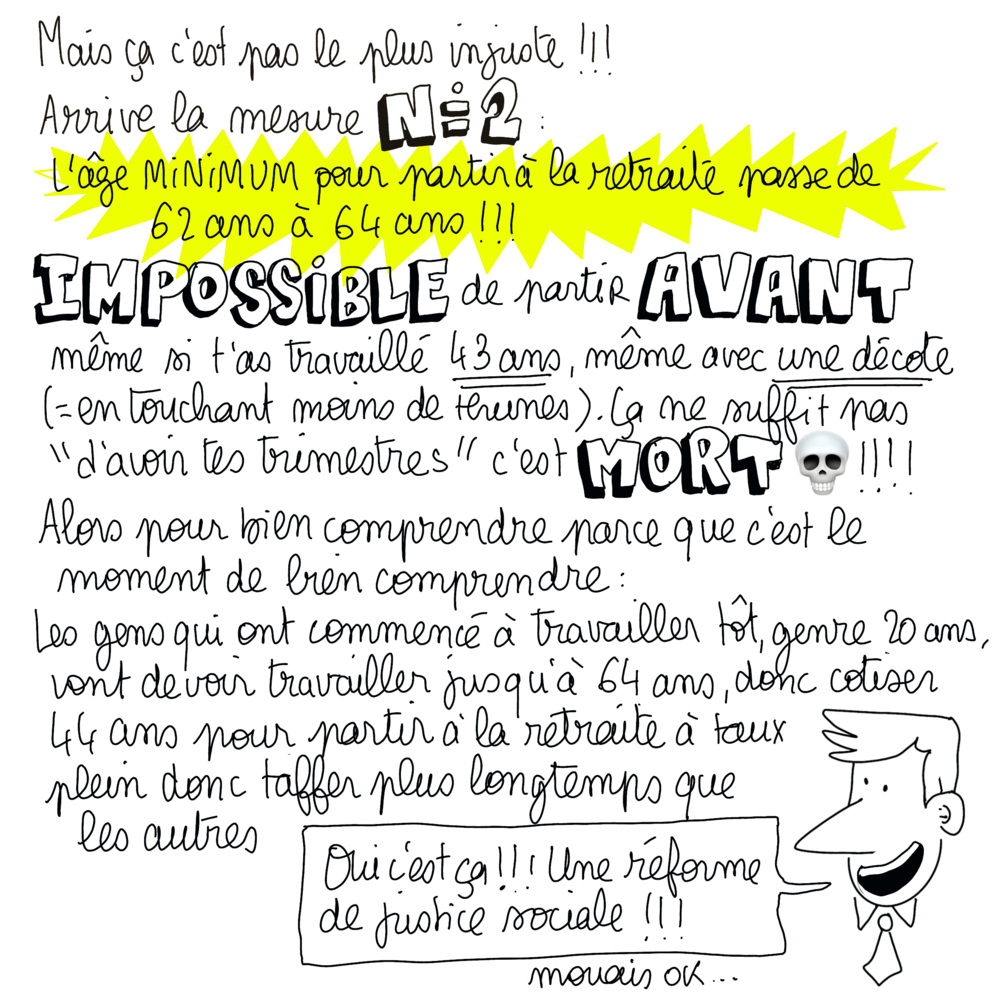 Mais ça c'est pas le plus injuste !!!
Arrive la mesure N=2 :
L'âge MiNiMUM pour partir à la retraite passe de
62 ans à 64 ans !!!
IMPOSSiBLE de partir AVANT
même si t'as travaillé 43 ans, même avec une décote
(= en touchant moins de thunes). Ça ne suffit pas
"d'avoir tes trimestres" c'est MORT 💀 !!!!
Alors pour bien comprendre parce que c'est le
moment de bien comprendre :
Les gens qui ont commencé à travailler tôt, genre 20 ans,
vont devoir travailler jusqu'à 64 ans, donc cotiser
44 ans pour partir à la retraite à taux
plein donc taffer plus longtemps que
les autres
Oui c'est ça !!! Une réforme
de justice sociale !!!
mouais OK...